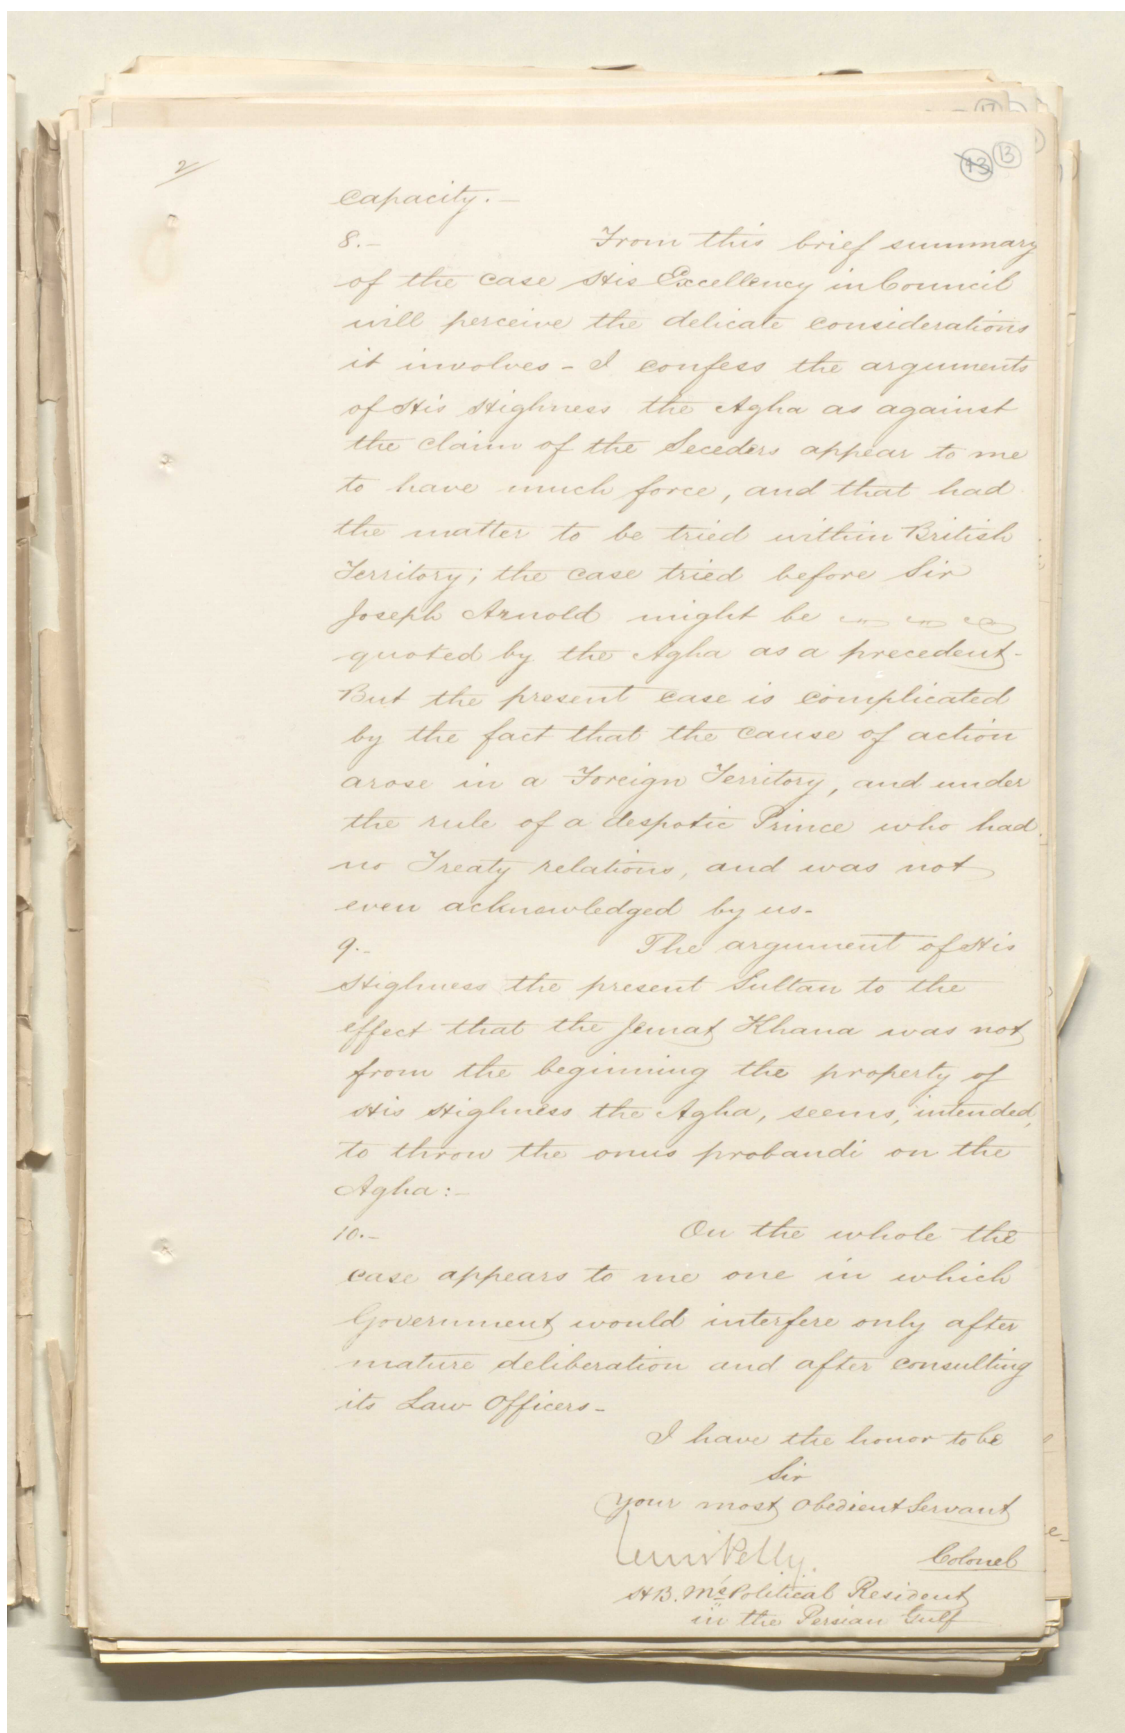 2
43 13
capacity. —
8.— From this brief summary
of the case His Excellency in Council
will perceive the delicate considerations
it involves – I confess the arguments
of His Highness the Agha as against
the claim of the Seceders appear to me
to have much force, and that had
the matter to be tried within British
Territory; the case tried before Sir
Joseph Arnold might be
quoted by the Agha as a precedent –
But the present case is complicated
by the fact that the cause of action
arose in a Foreign Territory, and under
the rule of a despotic Prince who had
no Treaty relations, and was not
even acknowledged by us –
9.— The argument of His
Highness the present Sultan to the
effect that the Jemat Khana was not
from the beginning the property of
His Highness the Agha, seems, intended,
to throw the onus probandi on the
Agha: –
10.— On the whole the
case appears to me one in which
Government would interfere only after
mature deliberation and after consulting
its Law Officers –
I have the honor to be
Sir
Your most Obedient Servant
Lewis Pelly. Colonel
H.B. M's Political Resident
in the Persian Gulf